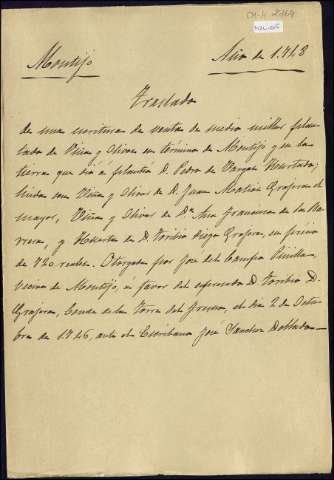 Montijo Año de 1748
Traslado
de una escritura de venta de medio millar plan-
tado de Viña y olivar en término de Montijo y en la
tierra que dió á plantar D. Pedro de Vargas Hurtado;
linda con Viña y olivar de D. Juan Matias Grajera el
mayor, Viña y olivar de Dª Ana Francisca de la Bar-
rera, y Huerta de D. Toribio Diego Grajera, en precio
de 720 reales. Otorgada por José del Campo
vecino de Montijo, á favor del expresado D. Toribio D.
Grajera, Conde de la Torre del Fresno, el dia 2 de Octu-
bre de 1746, ante el Escribano José Sanchez Doblado